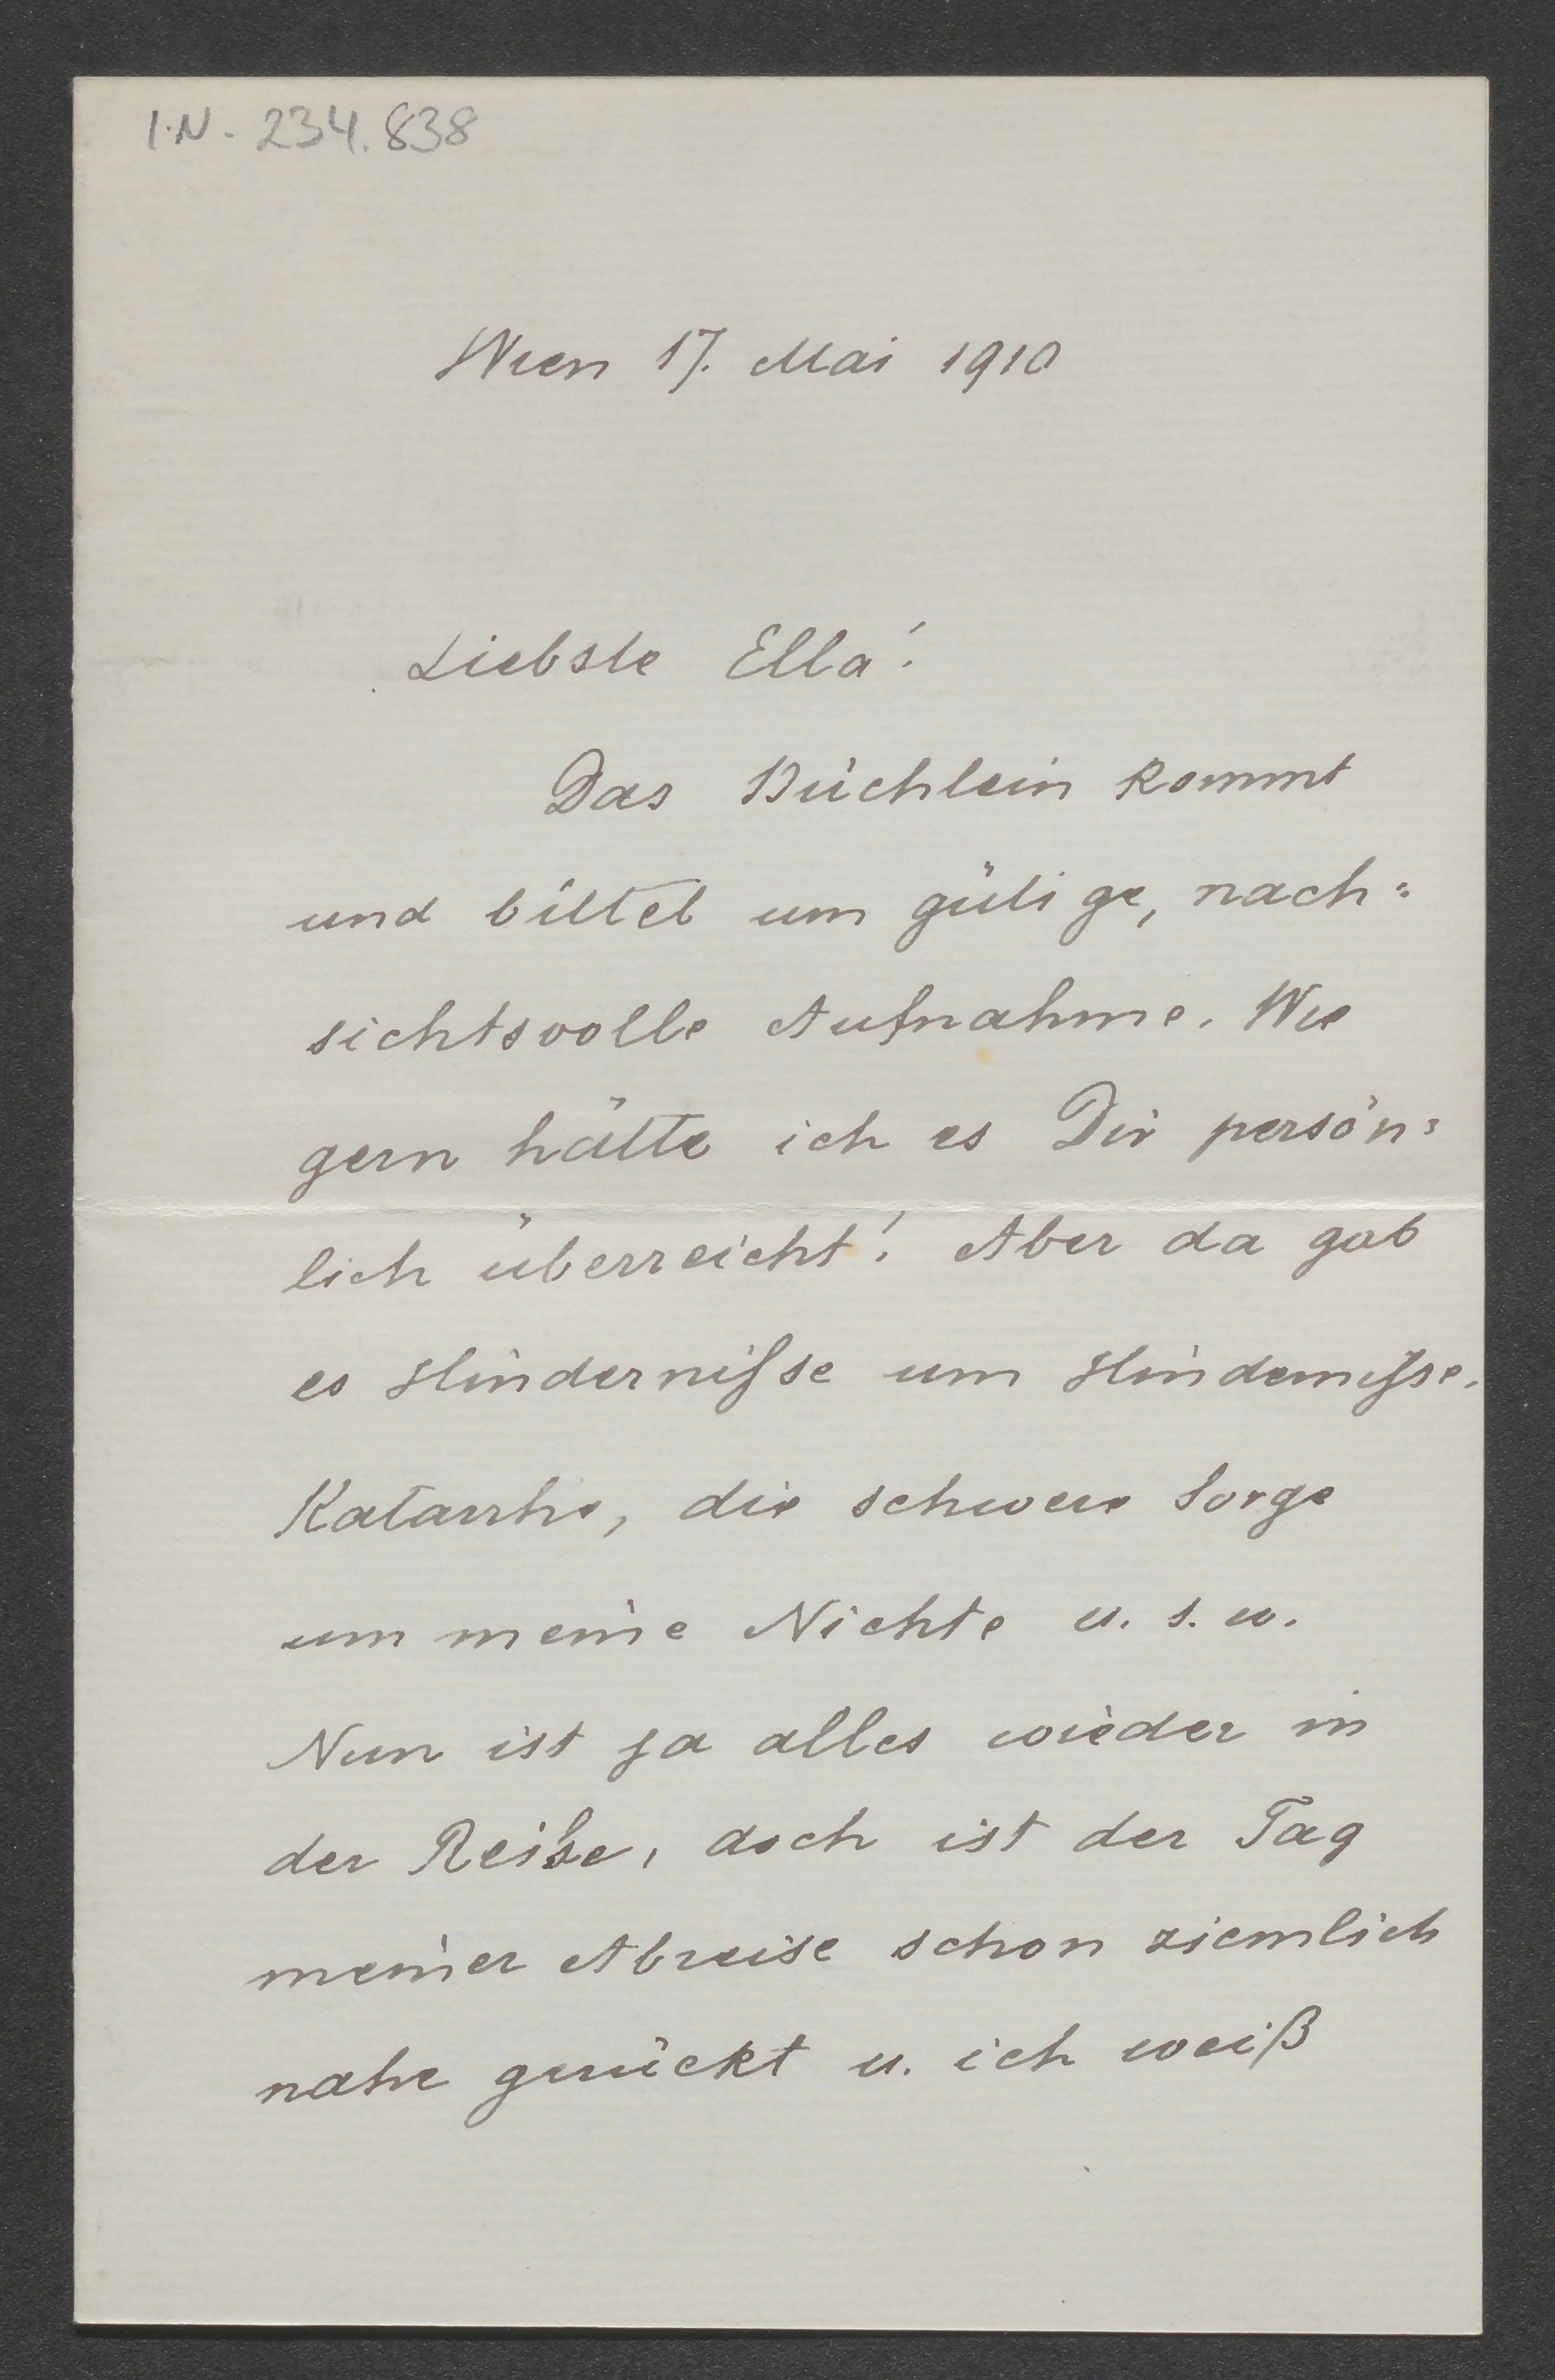 I.N. 234.838
Wien 17. Mai 1910
Liebste Ella!
Das Büchlein kommt
und bittet um gütige, nach=
sichtsvolle Aufnahme. Wie
gern hätte ich es Dir persön=
lich überreicht! Aber da gab
es Hindernisse um Hindernisse.
Katarrhe, die schwere Sorge
um meine Nichte u. s. w.
Nun ist ja alles wieder in
der Reihe, doch ist der Tag
meiner Abreise schon ziemlich
nahe gerückt u. ich weiß